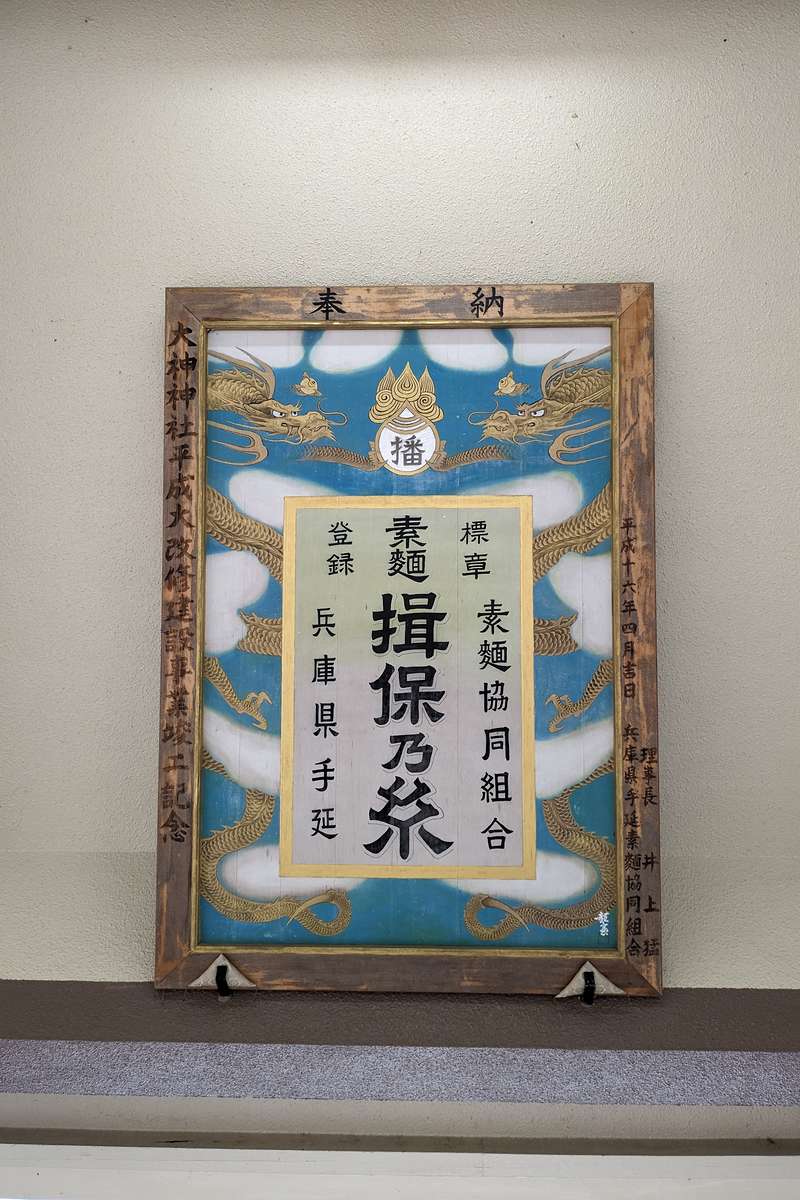 奉納
平成十六年四月吉日
兵庫県手延素麵協同組合
理事長 井上猛
播
標章
素麵協同組合
素麵
揖保乃糸
登録
兵庫県手延
大神神社平成大改修建設事業竣工記念